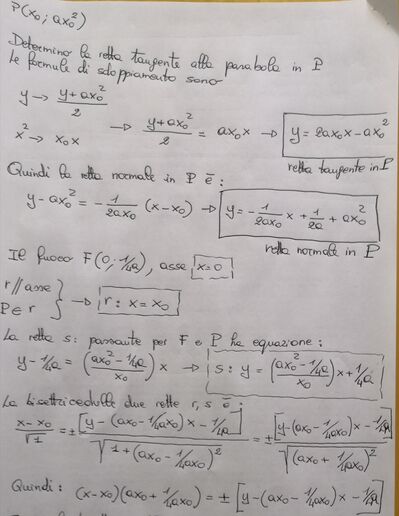 P(x₀; ax₀²)
Determino la retta tangente alla parabola in P
le formule di sdoppiamento sono
y → (y+ax₀²)/2
x² → x₀x → (y+ax₀²)/2 = ax₀x → y = 2ax₀x - ax₀²
retta tangente in P
Quindi la retta normale in P è:
y - ax₀² = -1/(2ax₀) (x-x₀) → y = -1/(2ax₀) x + 1/(2a) + ax₀²
retta normale in P
Il fuoco F(0; 1/4a), asse x=0
r // asse
P ∈ r } → r: x = x₀
La retta s: passante per F e P ha equazione:
y - 1/4a = ((ax₀² - 1/4a)/x₀) x → s: y = ((ax₀² - 1/4a)/x₀) x + 1/4a
La bisettrice delle due rette r, s è:
(x-x₀)/√1 = ± [y-(ax₀ - 1/4ax₀)x - 1/4a]/√(1+(ax₀ - 1/4ax₀)²) = ± [y-(ax₀ - 1/4ax₀)x - 1/4a]/√((ax₀ + 1/4ax₀)²)
Quindi: (x-x₀)(ax₀ + 1/4ax₀) = ± [y-(ax₀ - 1/4ax₀)x - 1/4a]